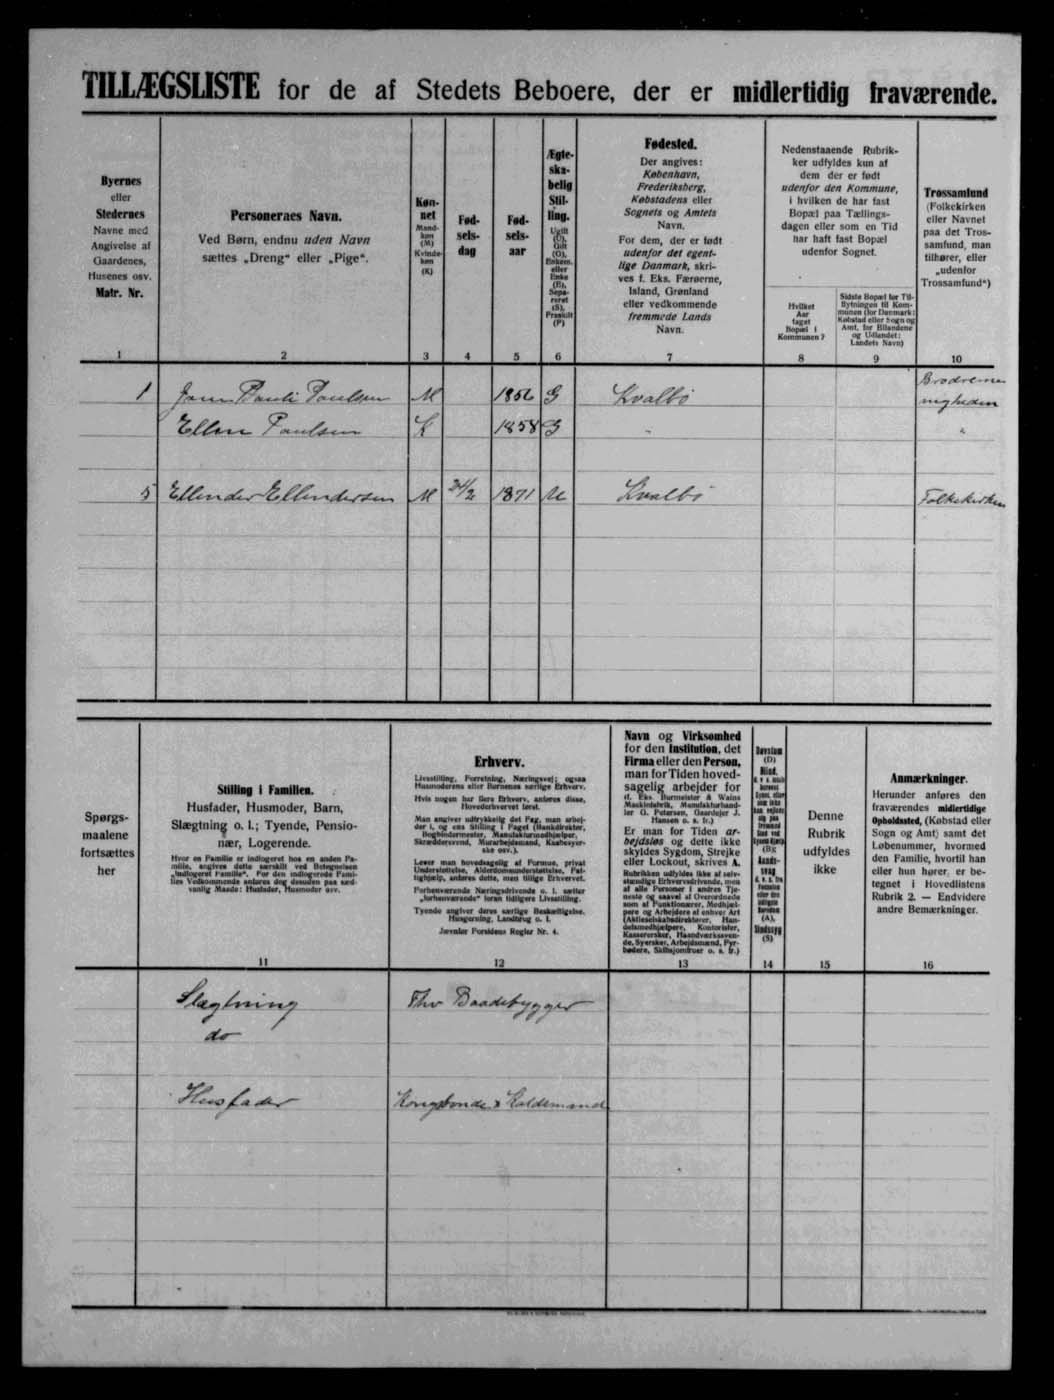 TILLÆGSLISTE for de af Stedets Beboere, der er midlertidig fraværende.
Byernes
eller
Stedernes
Navne med
Angivelse af
Gaardenes,
Husenes osv.
Matr. Nr.
1
Personernes Navn.
Ved Børn, endnu uden Navn
sættes „Dreng“ eller „Pige“.
2
Køn-
net
Mand-
køn
(M)
Kvinde-
køn
(K)
3
Fød-
sels-
dag
4
Fød-
sels-
aar
5
Ægte-
ska-
belig
Stil-
ling.
Ugift
(U),
Gift
(G),
Enkem.
eller
Enke
(E),
Sepa-
reret
(S),
Fraskilt
(F)
6
Fødested.
Der angives:
København,
Frederiksberg,
Købstadens eller
Sognets og Amtets
Navn.
For dem, der er født
udenfor det egent-
lige Danmark, skri-
ves f. Eks. Færøerne,
Island, Grønland
eller vedkommende
fremmede Lands
Navn.
7
Nedenstaaende Rubrik-
ker udfyldes kun af
dem der er født
udenfor den Kommune,
i hvilken de har fast
Bopæl paa Tællings-
dagen eller som en Tid
har haft fast Bopæl
udenfor Sognet.
Hvilket
Aar
taget
Bopæl i
Kommunen?
8
Sidste Bopæl før Til-
flytningen til Kom-
munen (for Danmark:
Købstad eller Sogn og
Amt, for Bilandene
og Udlandet:
Landets Navn)
9
Trossamfund
(Folkekirken
eller Navnet
paa det Tros-
samfund, man
tilhører, eller
„udenfor
Trossamfund“)
10
1 Jens Pauli Poulsen M 1856 G Kvalbø Brodreme
nigheden
Ellen Poulsen K 1858 G " "
5 Ellendor Ellendersen M 24/2 1871 U Kvalbø Folkekirken
Spørgs-
maalene
fortsættes
her
Stilling i Familien.
Husfader, Husmoder, Barn,
Slægtning o. l.; Tyende, Pensio-
nær, Logerende.
Hvor en Familie er indlogeret hos en anden Fa-
milie, angives dette særskilt ved Betegnelsen
„indlogeret Familie“. For den indlogerede Fami-
lies Vedkommende anføres dog desuden paa sæd-
vanlig Maade: Husfader, Husmoder osv.
11
Erhverv.
Livsstilling, Forretning, Næringsvej; ogsaa
Husmoderens eller Børnenes særlige Erhverv.
Hvis nogen har flere Erhverv, anføres disse,
Hovederhvervet først.
Man angiver udtrykkelig det Fag, man arbej-
der i, og ens Stilling i Faget (Bankdirektør,
Bogbindermester, Manufakturmedhjælper,
Skræddersvend, Murarbejdsmand, Kaabesyer-
ske osv.).
Lever man hovedsagelig af Formue, privat
Understøttelse, Alderdomsunderstøttelse, Fat-
tighjælp, anføres dette, men tillige Erhvervet.
Forhenværende Næringsdrivende o. l. sætter
„forhenværende“ foran tidligere Livsstilling.
Tyende angiver deres særlige Beskæftigelse.
Husgerning, Landbrug o. l.
Jævnfør Forsidens Regler Nr. 4.
12
Navn og Virksomhed
for den Institution, det
Firma eller den Person,
man for Tiden hoved-
sagelig arbejder for
(f. Eks. Burmeister & Wains
Maskinfabrik, Manufakturhand-
ler G. Petersen, Gaardejer J.
Hansen o. s. fr.)
Er man for Tiden ar-
bejdsløs og dette ikke
skyldes Sygdom, Strejke
eller Lockout, skrives A.
Rubrikken udfyldes ikke af selv-
stændige Erhvervsdrivende, men
af alle Personer i andres Tje-
neste og saavel af Overordnede
som af Funktionærer, Medhjæl-
pere og Arbejdere af enhver Art
(Aktieselskabsdirektører, Han-
delsmedhjælpere, Kontorister,
Kasserersker, Haandværkssven-
de, Syersker, Arbejdsmænd, Fyr-
bødere, Skibsjomfruer o. s. fr.)
13
Døvstum
(D)
Blind,
(B);
Aands-
svag
(A),
Sindssyg
(S)
14
Denne
Rubrik
udfyldes
ikke
15
Anmærkninger.
Herunder anføres den
fraværendes midlertidige
Opholdssted, (Købstad eller
Sogn og Amt) samt det
Løbenummer, hvormed
den Familie, hvortil han
eller hun hører, er be-
tegnet i Hovedlistens
Rubrik 2. — Endvidere
andre Bemærkninger.
16
Slægtning Fhv Baadebygger
do
Husfader Kongsbonde & Haldsmand